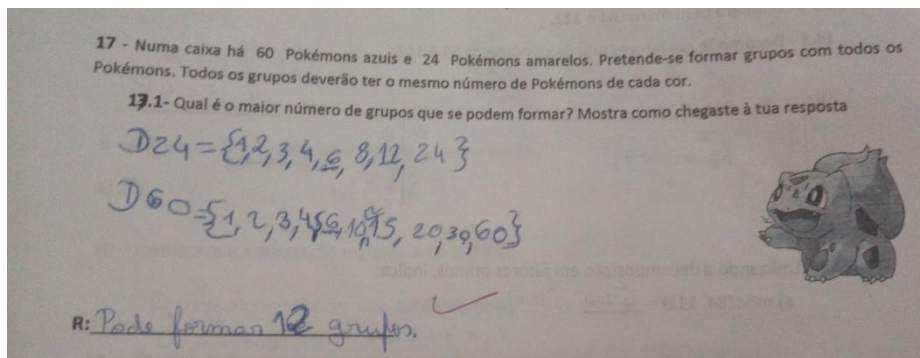 17 - Numa caixa há 60 Pokémons azuis e 24 Pokémons amarelos. Pretende-se formar grupos com todos os
Pokémons. Todos os grupos deverão ter o mesmo número de Pokémons de cada cor.
17.1- Qual é o maior número de grupos que se podem formar? Mostra como chegaste à tua resposta
D24={1,2,3,4,6,8,12,24}
D60={1,2,3,4,5,6,10,15,20,30,60}
R: Pode formar 12 grupos.